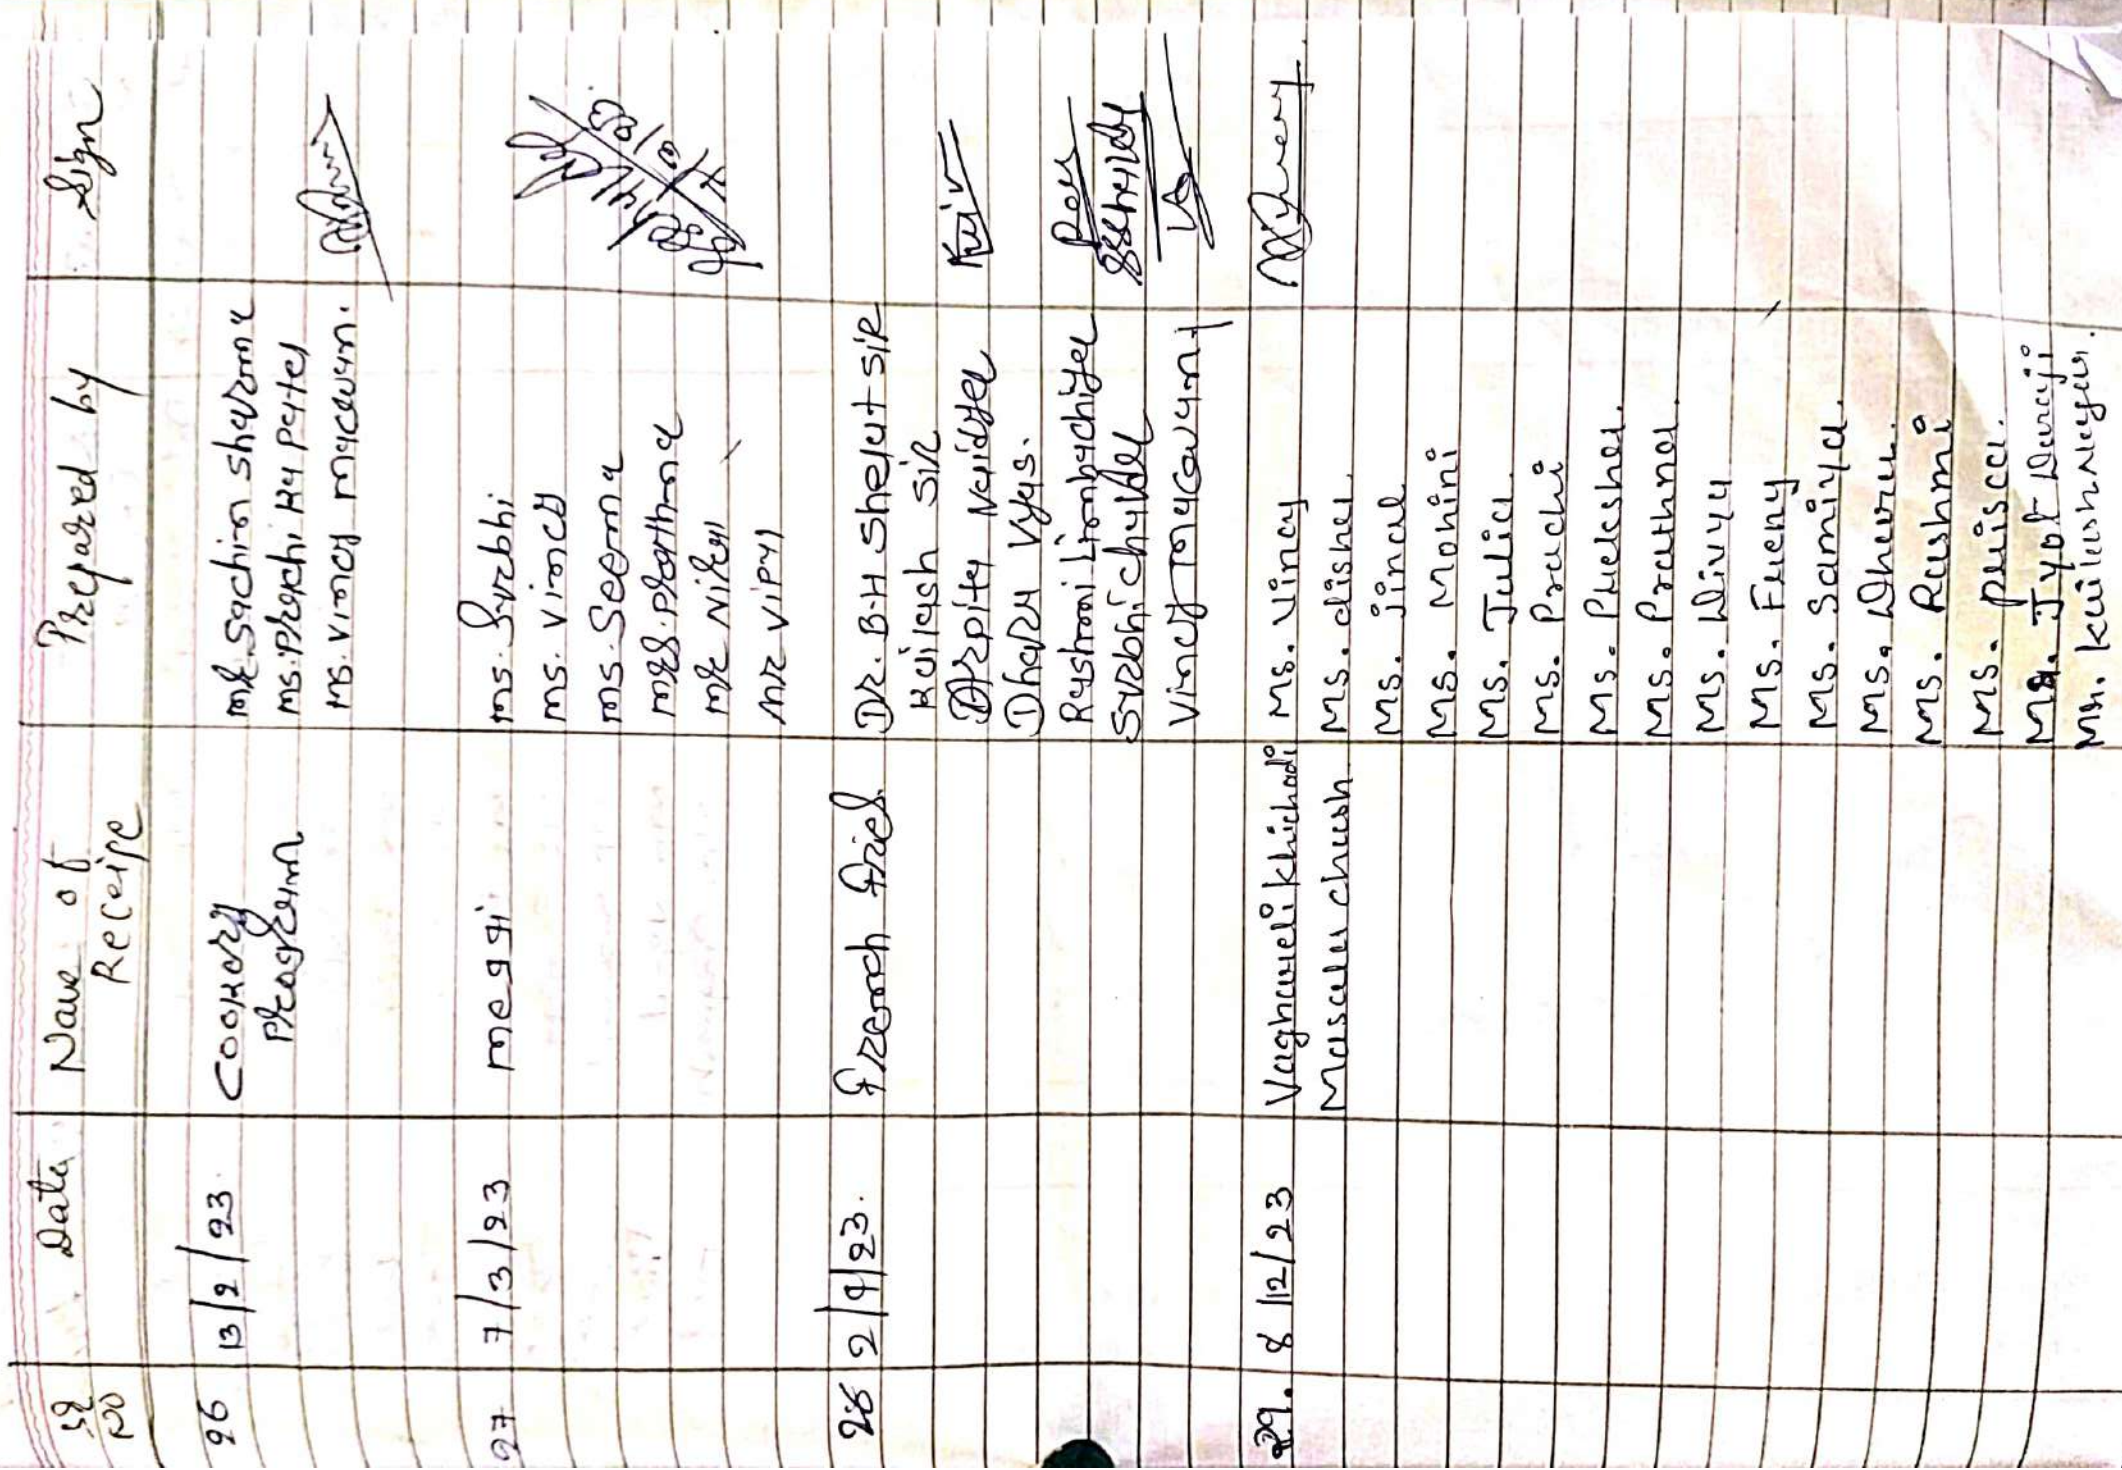 Sr No Date Name of Receipe Prepared by Sign
26 13/2/23. Cookery Program
Mr. Sachin Sharma
Ms. Prachi Ry Patel
Ms. Vincy Macwan.
27 7/3/23 meggi
Ms. Surbhi
Ms. Vincy
Ms. Seema
Mrs. Prathna
Mr Nikul
Mr Vipul
28 2/4/23. French fries.
Dr. B.H Shelat Sir
Kailash Sir
Arpita Naidya
Dhara Vyas.
Rashmi Limbachiya
Surbhi chavda
Vincy macwan
29. 8/12/23 Vaghareli khichadi
Masala chash
Ms. Vincy
Ms. disha
Ms. jinal
Ms. Mohini
Ms. Julia
Ms. Prachi
Ms. Pleksha.
Ms. Prathna
Ms. Divya
Ms. Freny
Ms. Samiya.
Ms. Dhara.
Ms. Rashmi
Ms. Raisa.
Mr. Jyot Darji
Mr. Kailash Nayar.